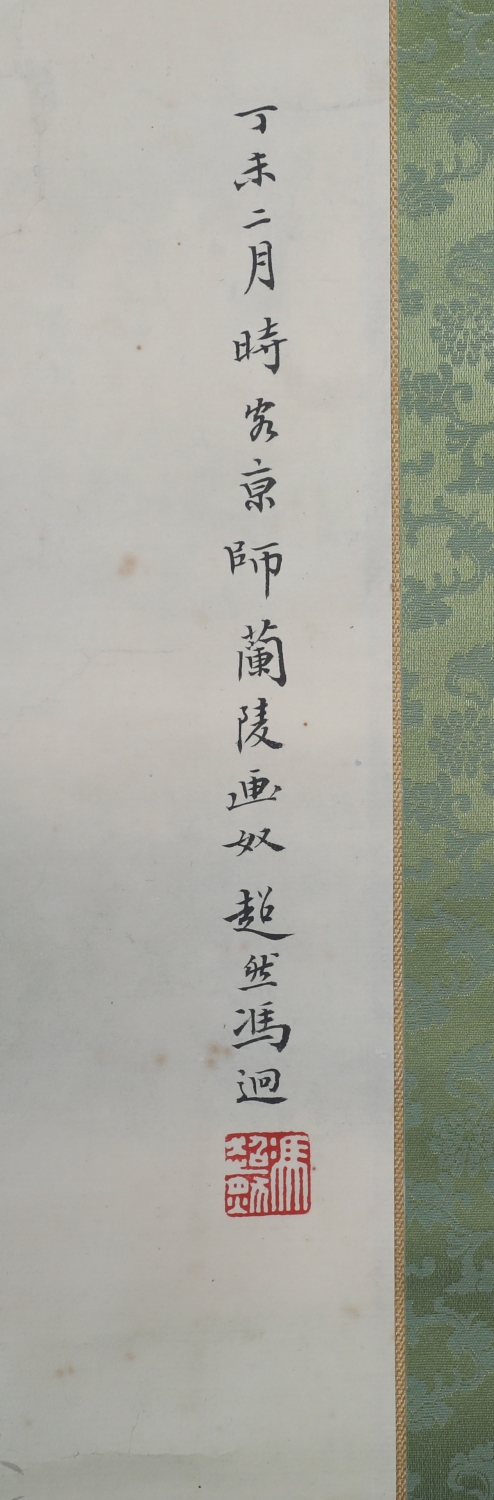 丁未二月時客京師蘭陵画奴超然馮迥
馮超然